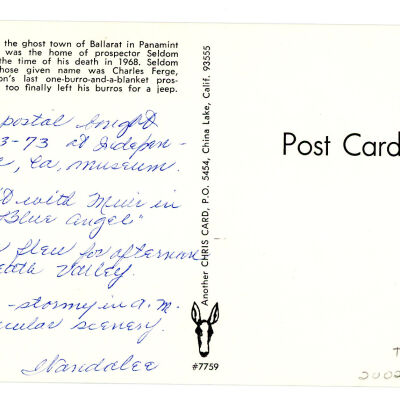 the ghost town of Ballarat in Panamint
was the home of prospector Seldom
the time of his death in 1968. Seldom
hose given name was Charles Ferge,
on's last one-burro-and-a-blanket pros-
too finally left his burros for a jeep.
postal bought
3-73 at Indepen-
Ca, museum.
with Muir in
Blue Angel"
flew for afternoon
Valley.
-stormy in a.m.
cular scenery.
Wandalee
Another CHRIS CARD, P.O. 5454, China Lake, Calif. 93555
#7759
Post Card
2002